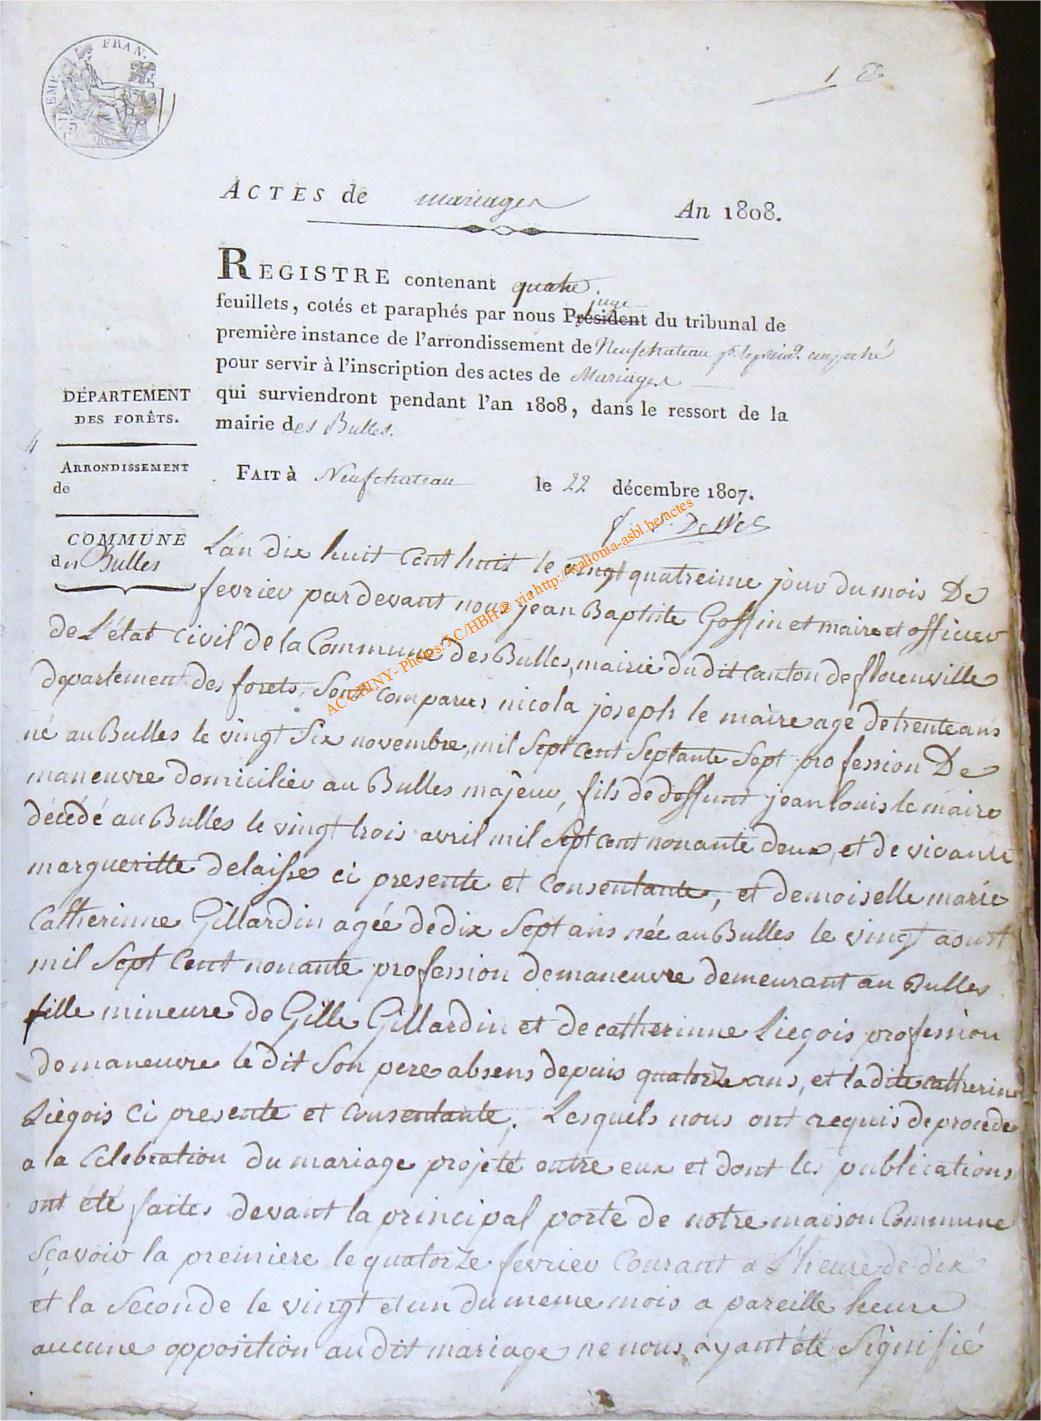 EMP. FRAN.
1
ACTES de mariages An 1808.
REGISTRE contenant quatre
feuillets, cotés et paraphés par nous Président juge du tribunal de
première instance de l'arrondissement de Neufchateau empeché
pour servir à l'inscription des actes de Mariages
qui surviendront pendant l'an 1808, dans le ressort de la
mairie des Bulles.
DÉPARTEMENT
DES FORÊTS.
4
ARRONDISSEMENT
de
FAIT à Neufchateau le 22 décembre 1807.
COMMUNE
des Bulles
L'an dix huit cent huit le vingt quatreime jour du mois De
fevrier pardevant nous jean Baptiste Goffinet maire et officier
de L'état civil de la Commune des Bulles, mairie dudit canton de florenville
departement des forets, sont comparus nicola joseph le maire age de trente ans
né au Bulles le vingt six novembre, mil sept cent septante sept profession De
maneuvre domicilier au Bulles majeur, fils de deffunt jean louis le maire
décédé au Bulles le vingt trois avril mil sept cent nonante deux, et de vivante
margueritte delaisse ci presente et consentante, et demoiselle marie
catherinne Gillardin agée de dix sept ans née au Bulles le vingt aoust
mil sept cent nonante profession de maneuvre demeurant au Bulles
fille mineure de Gille Gillardin et de catherinne Liegois profession
de maneuvre le dit son pere absens depuis quatorze ans, et la dite catherine
Liegois ci presente et consentante, Lesquels nous ont requis de procede
a la celebration du mariage projeté entre eux et dont les publications
ont été faites devant la principal porte de notre maison Commune
sçavoir la premiere le quatorze fevrier courant a l'heure de dix
et la seconde le vingt et un du meme mois a pareille heure
aucune opposition au dit mariage ne nous ayant été signifié
AC CHINY - Photos AC/HBH @ via http://wallonia-asbl.be/actes